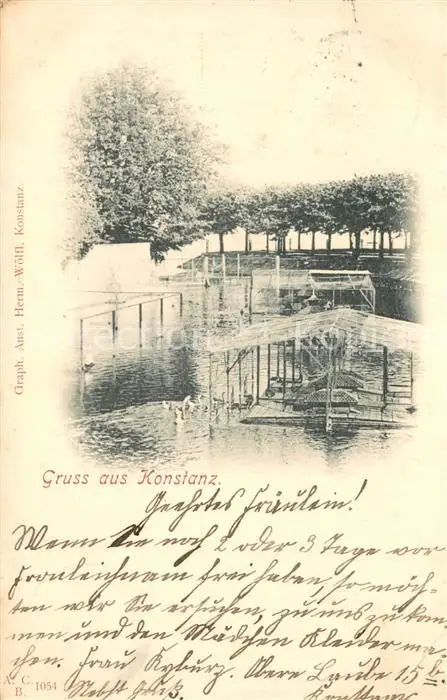 Graph. Anst. Herm. Wölfl, Konstanz.
Gruss aus Konstanz.
Geehrtes Fräulein!
Wenn Sie noch 2 oder 3 Tage vor
Fronleichnam frei haben, so möch-
ten wir Sie ersuchen, zu uns zu kom
men und den Mädchen Kleider ma-
chen. Frau Kyburz. Obere Laube 15
Nebst Gruß.
Konstanz
A. C.
B. 1054